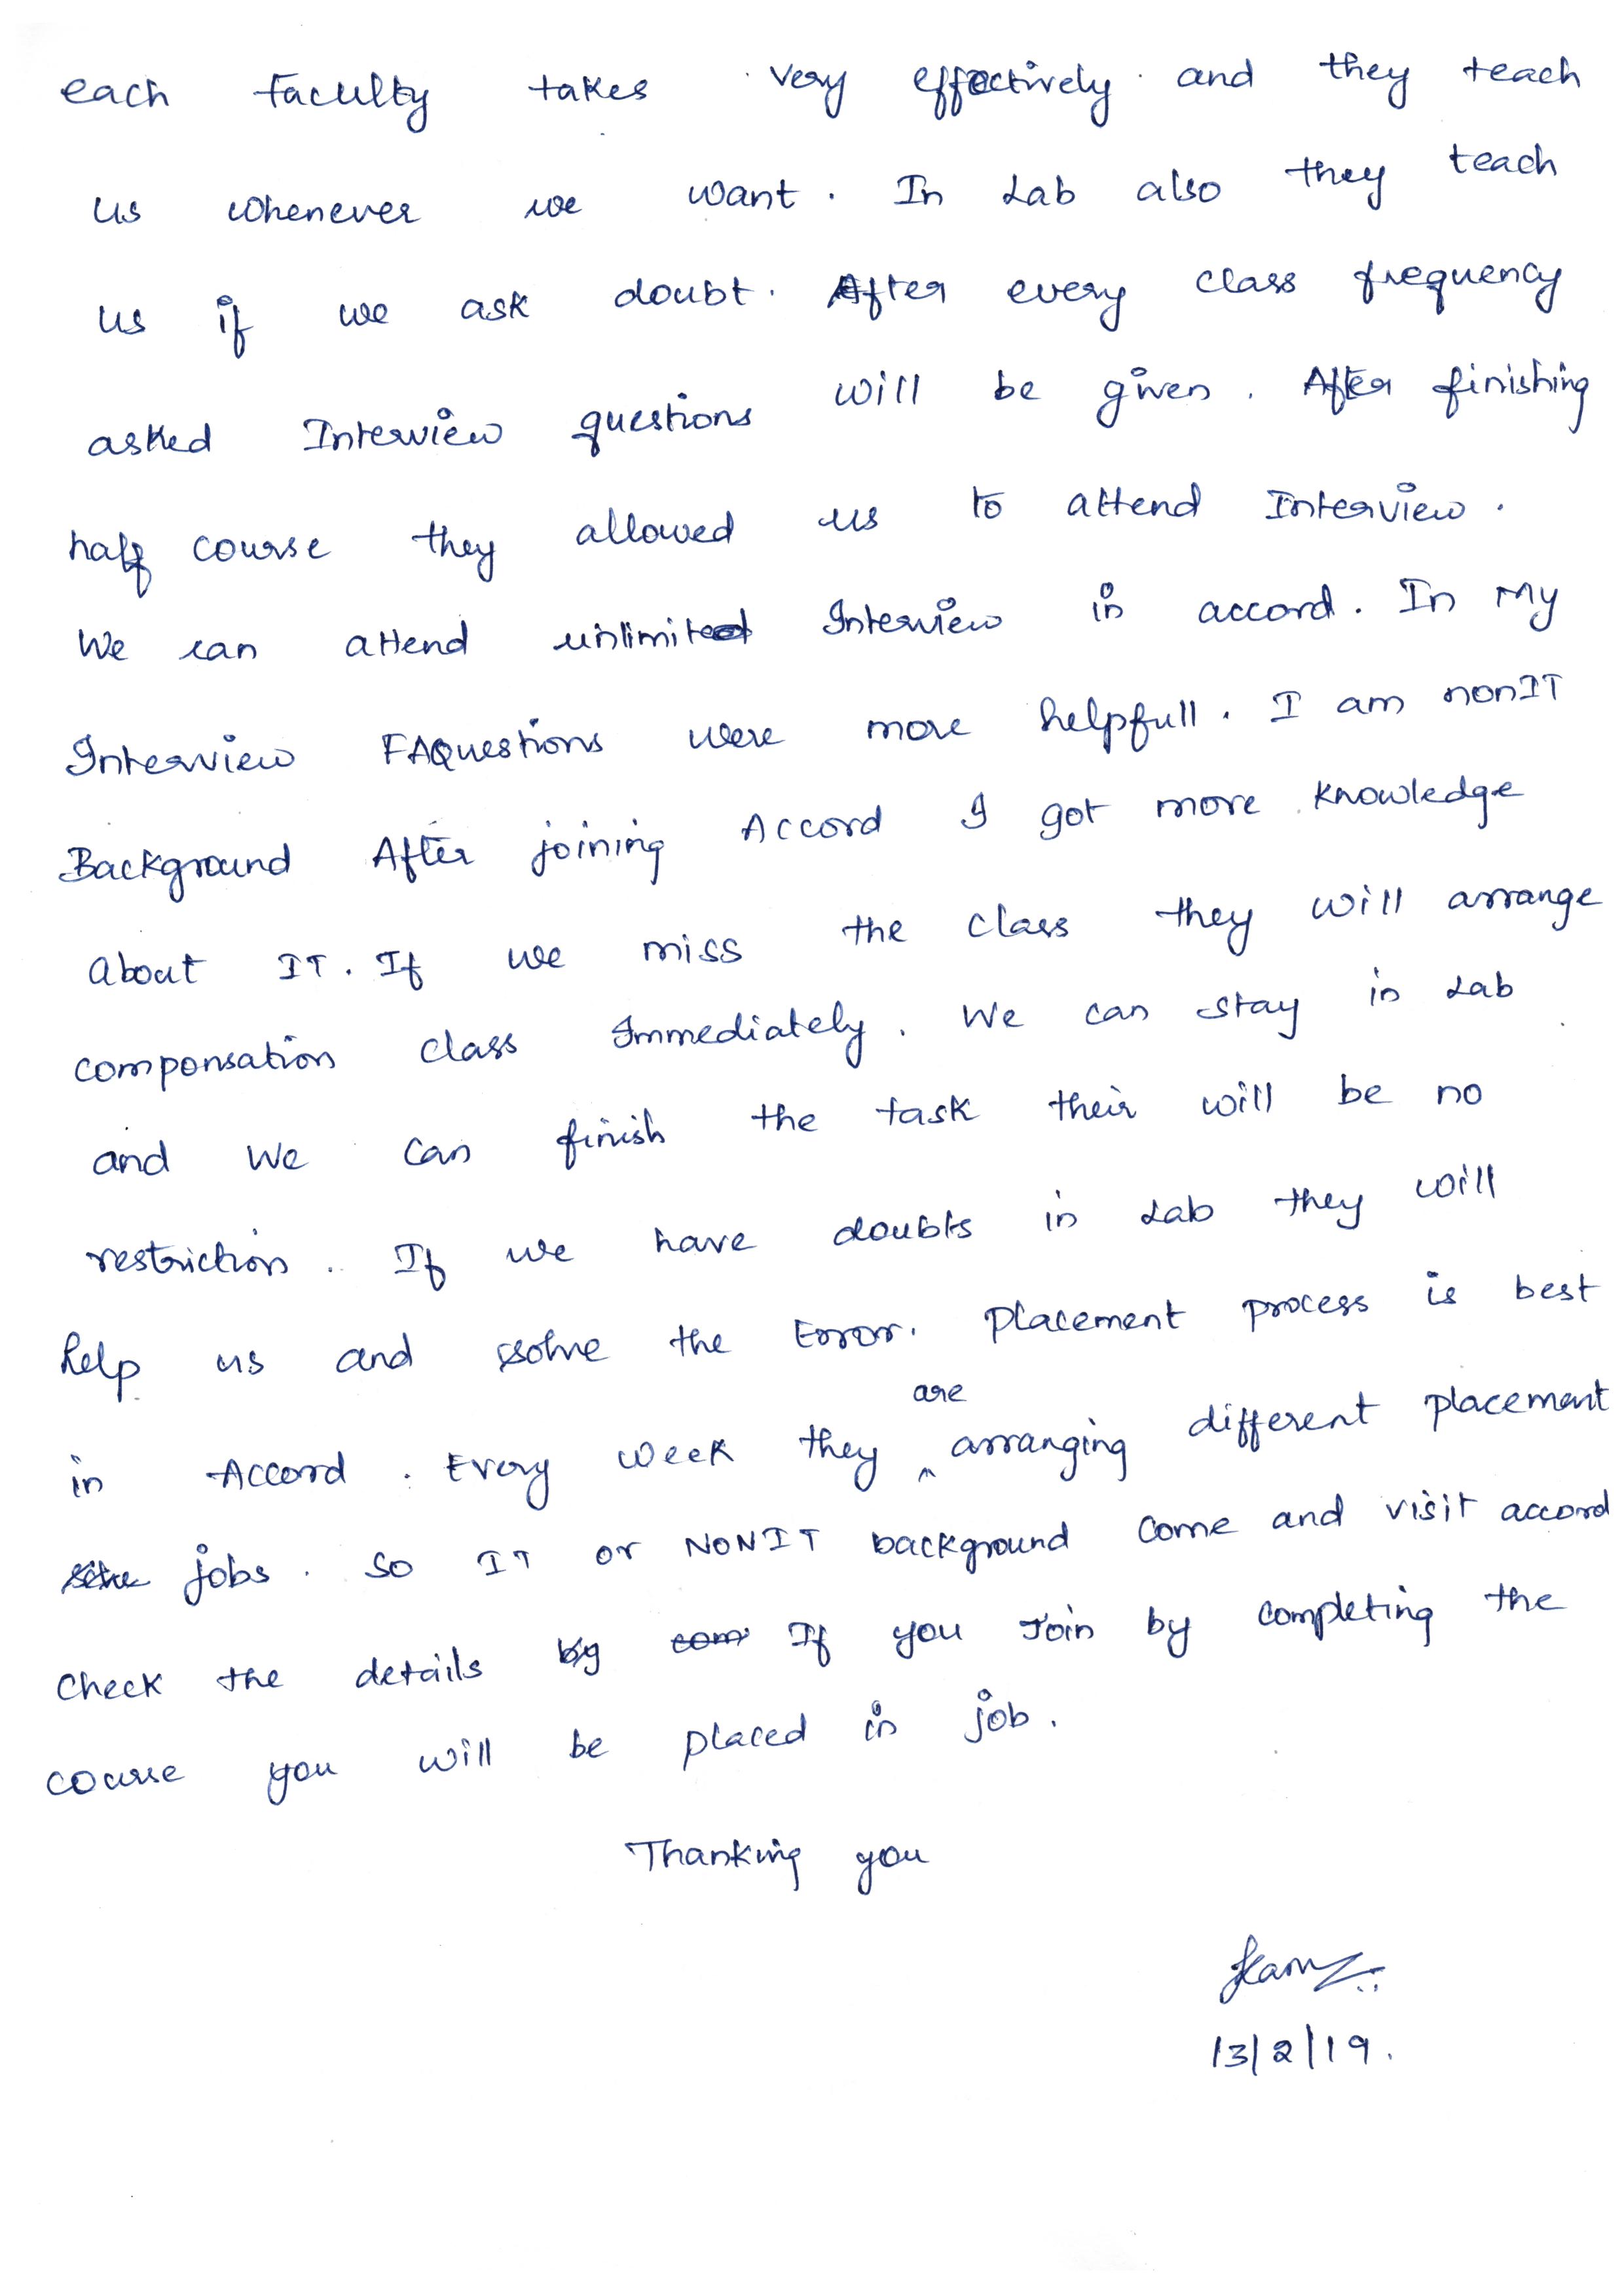 each faculty takes very effectively and they teach
us whenever we want. In Lab also they teach
us if we ask doubt. After every class frequency
asked Interview questions will be given. After finishing
half course they allowed us to attend Interview.
We can attend unlimited Interview in accord. In My
Interview FAQuestions were more helpfull. I am nonIT
Background After joining Accord I got more knowledge
About IT. If we miss the class they will arrange
compensation class Immediately. We can stay in Lab
and we can finish the task their will be no
restriction. If we have doubts in Lab they will
help us and solve the Error. Placement process is best
in Accord. Every week they are arranging different placement
jobs. So IT or NONIT background come and visit accord
Check the details If you Join by completing the
course you will be placed in job.
Thanking you
13/2/19.